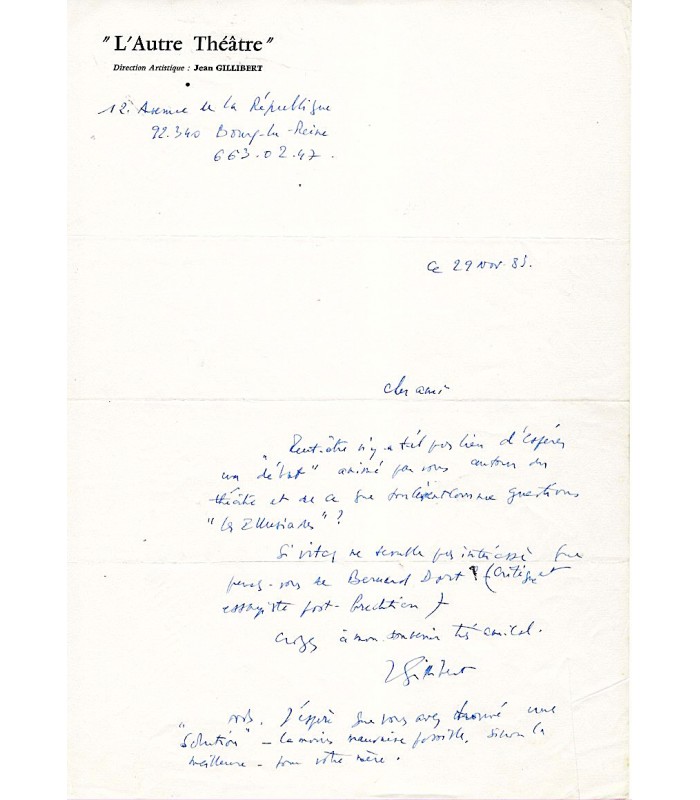 "L'Autre Théâtre"
Direction Artistique : Jean GILLIBERT
12. Avenue de la République
92.340 Bourg-la-Reine
663.02.47.
Ce 29 Nov 83.
Cher ami
Peut-être n'y a-t-il pas lieu d'espérer
un "débat" animé par vous autour du
théâtre et de ce que soulèvent comme questions
"les Illusiades" ?
Si Vitez ne semble pas intéressé que
pensez-vous de Bernard Dort ? (critique et
essayiste post-brechtien)
Croyez à mon souvenir très amical.
JGillibert
J'espère que vous avez trouvé une
"solution" - la moins mauvaise possible, sinon la
meilleure - pour votre mère.